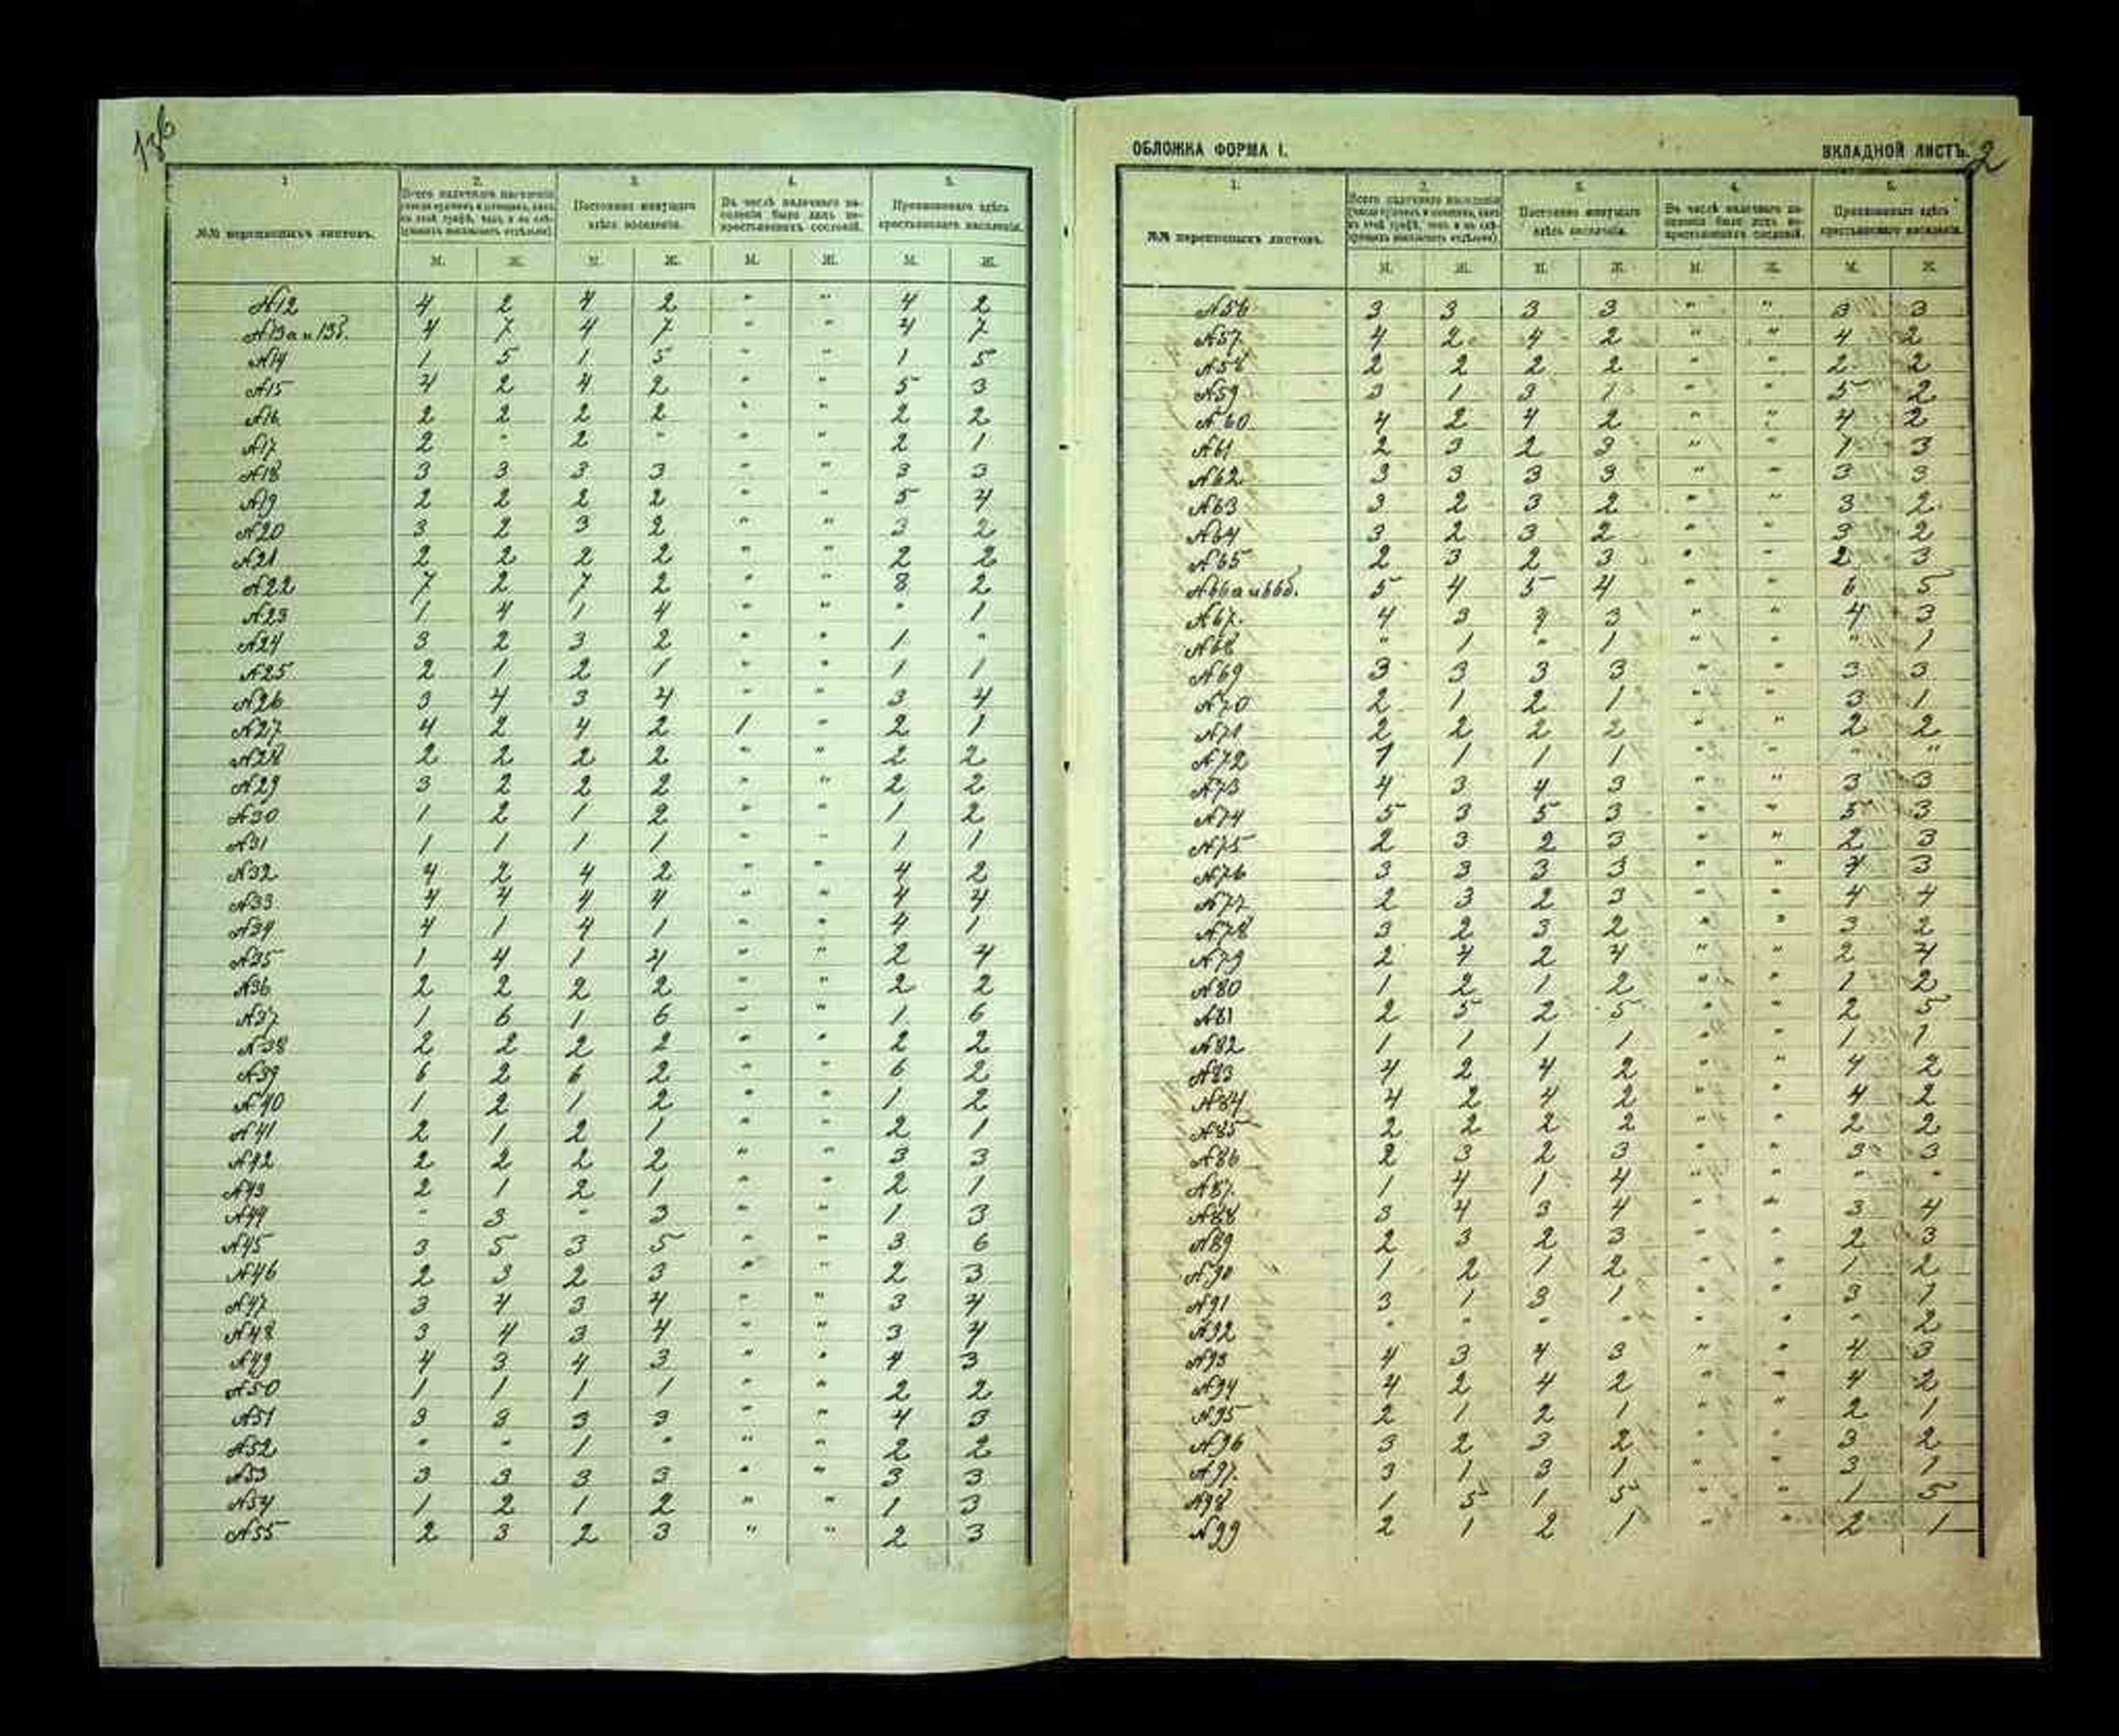 1.
2.
3.
4.
5.
№№ переписныхъ листовъ.
Всего наличнаго населенія
Постоянно живущаго здѣсь населенія.
Въ числѣ наличнаго населенія было лицъ некрестьянскихъ сословій.
Приписаннаго здѣсь крестьянскаго населенія.
М. Ж. М. Ж. М. Ж. М. Ж.
№12 4 2 4 2 " " 4 2
№13а и 13б. 4 7 4 7 " " 4 7
№14 1 5 1 5 " " 1 5
№15 4 2 4 2 " " 5 3
№16 2 2 2 2 " " 2 2
№17 2 " 2 " " " 2 1
№18 3 3 3 3 " " 3 3
№19 2 2 2 2 " " 5 4
№20 3 2 3 2 " " 3 2
№21 2 2 2 2 " " 2 2
№22 7 2 7 2 " " 8 2
№23 1 4 1 4 " " " 1
№24 3 2 3 2 " " 1 "
№25 2 1 2 1 " " 1 1
№26 3 4 3 4 " " 3 4
№27 4 2 4 2 1 " 2 1
№28 2 2 2 2 " " 2 2
№29 3 2 2 2 " " 2 2
№30 1 2 1 2 " " 1 2
№31 1 1 1 1 " " 1 1
№32 4 2 4 2 " " 4 2
№33 4 4 4 4 " " 4 4
№34 4 1 4 1 " " 4 1
№35 1 4 1 4 " " 2 4
№36 2 2 2 2 " " 2 2
№37 1 6 1 6 " " 1 6
№38 2 2 2 2 " " 2 2
№39 6 2 6 2 " " 6 2
№40 1 2 1 2 " " 1 2
№41 2 1 2 1 " " 2 1
№42 2 2 2 2 " " 3 3
№43 2 1 2 1 " " 2 1
№44 " 3 " 3 " " 1 3
№45 3 5 3 5 " " 3 6
№46 2 3 2 3 " " 2 3
№47 3 4 3 4 " " 3 4
№48 3 4 3 4 " " 3 4
№49 4 3 4 3 " " 4 3
№50 1 1 1 1 " " 2 2
№51 3 3 3 3 " " 4 3
№52 " " 1 " " " 2 2
№53 3 3 3 3 " " 3 3
№54 1 2 1 2 " " 1 3
№55 2 3 2 3 " " 2 3
ОБЛОЖКА ФОРМА I.
ВКЛАДНОЙ ЛИСТЪ. 2
1.
2.
3.
4.
5.
№№ переписныхъ листовъ.
Всего наличнаго населенія
Постоянно живущаго здѣсь населенія.
Въ числѣ наличнаго населенія было лицъ некрестьянскихъ сословій.
Приписаннаго здѣсь крестьянскаго населенія.
М. Ж. М. Ж. М. Ж. М. Ж.
№56 3 3 3 3 " " 3 3
№57 4 2 4 2 " " 4 2
№58 2 2 2 2 " " 2 2
№59 3 1 3 1 " " 5 2
№60 4 2 4 2 " " 4 2
№61 2 3 2 3 " " 1 3
№62 3 3 3 3 " " 3 3
№63 3 2 3 2 " " 3 2
№64 3 2 3 2 " " 3 2
№65 2 3 2 3 " " 2 3
№66а и 66б. 5 4 5 4 " " 6 5
№67. 4 3 4 3 " " 4 3
№68 " 1 " 1 " " " 1
№69 3 3 3 3 " " 3 3
№70 2 1 2 1 " " 3 1
№71 2 2 2 2 " " 2 2
№72 1 1 1 1 " " " "
№73 4 3 4 3 " " 3 3
№74 5 3 5 3 " " 5 3
№75 2 3 2 3 " " 2 3
№76 3 3 3 3 " " 4 3
№77 2 3 2 3 " " 4 4
№78 3 2 3 2 " " 3 2
№79 2 4 2 4 " " 2 4
№80 1 2 1 2 " " 1 2
№81 2 5 2 5 " " 2 5
№82 1 1 1 1 " " 1 1
№83 4 2 4 2 " " 4 2
№84 4 2 4 2 " " 4 2
№85 2 2 2 2 " " 2 2
№86 2 3 2 3 " " 3 3
№87. 1 4 1 4 " " " "
№88 3 4 3 4 " " 3 4
№89 2 3 2 3 " " 2 3
№90 1 2 1 2 " " 1 2
№91 3 1 3 1 " " 3 1
№92 " " " " " " " 2
№93 4 3 4 3 " " 4 3
№94 4 2 4 2 " " 4 2
№95 2 1 2 1 " " 2 1
№96 3 2 3 2 " " 3 2
№97. 3 1 3 1 " " 3 1
№98 1 5 1 5 " " 1 5
№99 2 1 2 1 " " 2 1